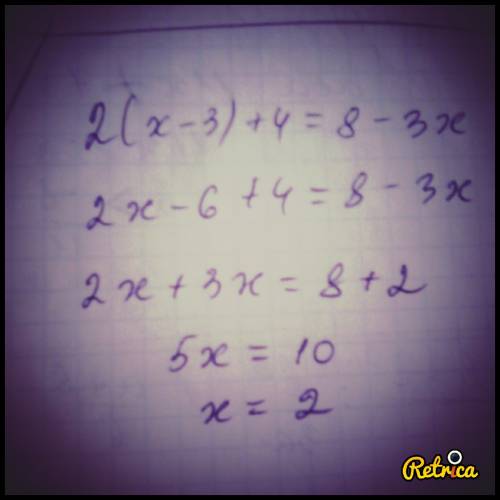 2(x-3)+4=8-3x
2x-6+4=8-3x
2x+3x=8+2
5x=10
x=2
Retrica